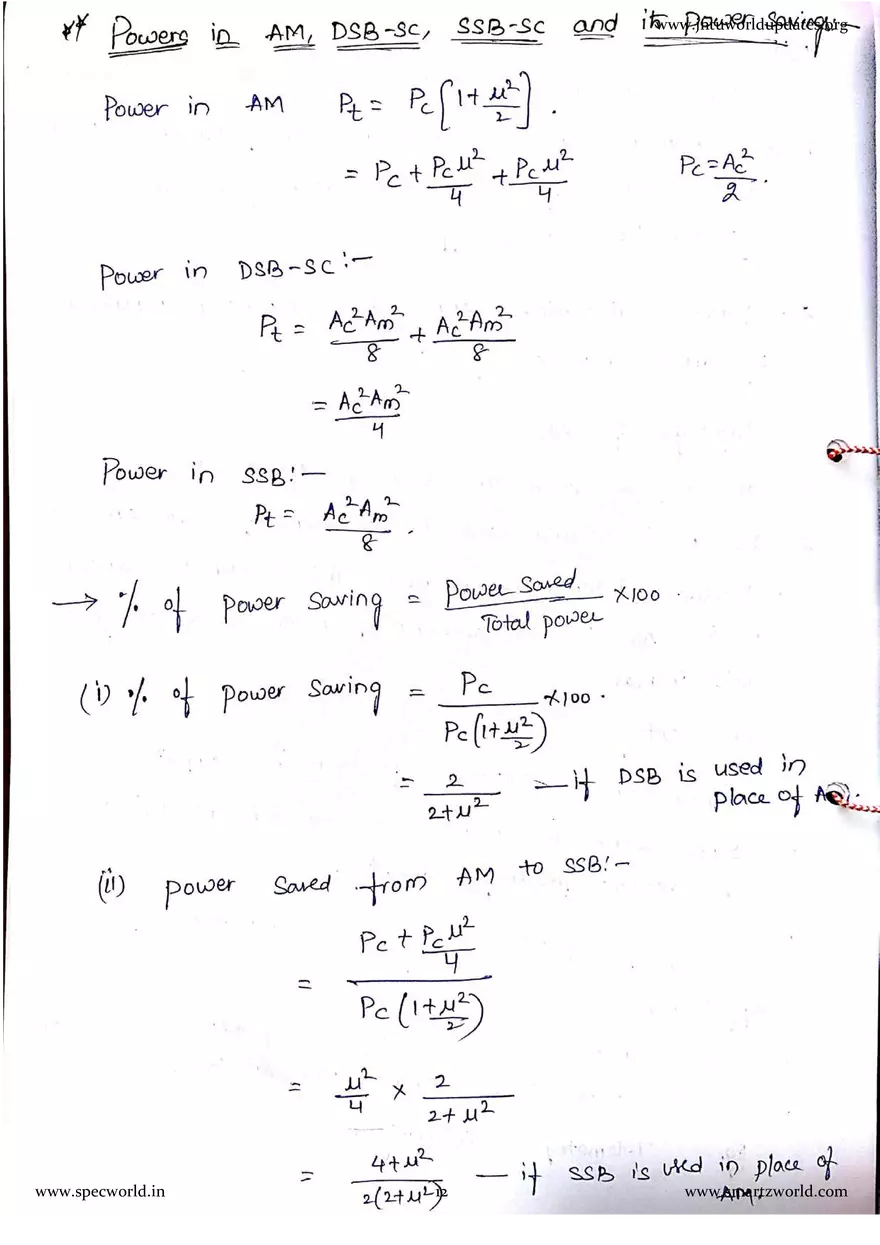 ** Powers in AM, DSB-SC, SSB-SC and its Power Savings:-
www.jntuworldupdates.org
Power in AM Pt = Pc[1+μ²/2].
= Pc + Pcμ²/4 + Pcμ²/4 Pc = Ac²/2.
Power in DSB-SC:-
Pt = Ac²Am²/8 + Ac²Am²/8
= Ac²Am²/4
Power in SSB:-
Pt = Ac²Am²/8.
→ % of power saving = Power saved/Total power ×100.
(i) % of power saving = Pc/Pc(1+μ²/2) ×100.
= 2/2+μ² — if DSB is used in
place of
(ii) power saved from AM to SSB:-
= Pc + Pcμ²/4 / Pc(1+μ²/2)
= μ²/4 × 2/2+μ²
= 4+μ²/2(2+μ²) — if SSB is used in place of
AM.
www.specworld.in
12
www.smartzworld.com